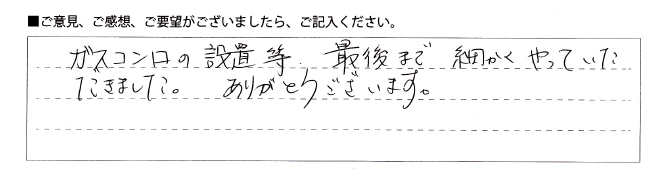 ■ご意見、ご感想、ご要望がございましたら、ご記入ください。
ガスコンロの設置等、最後まで細かくやっていた
だきました。ありがとうございます。